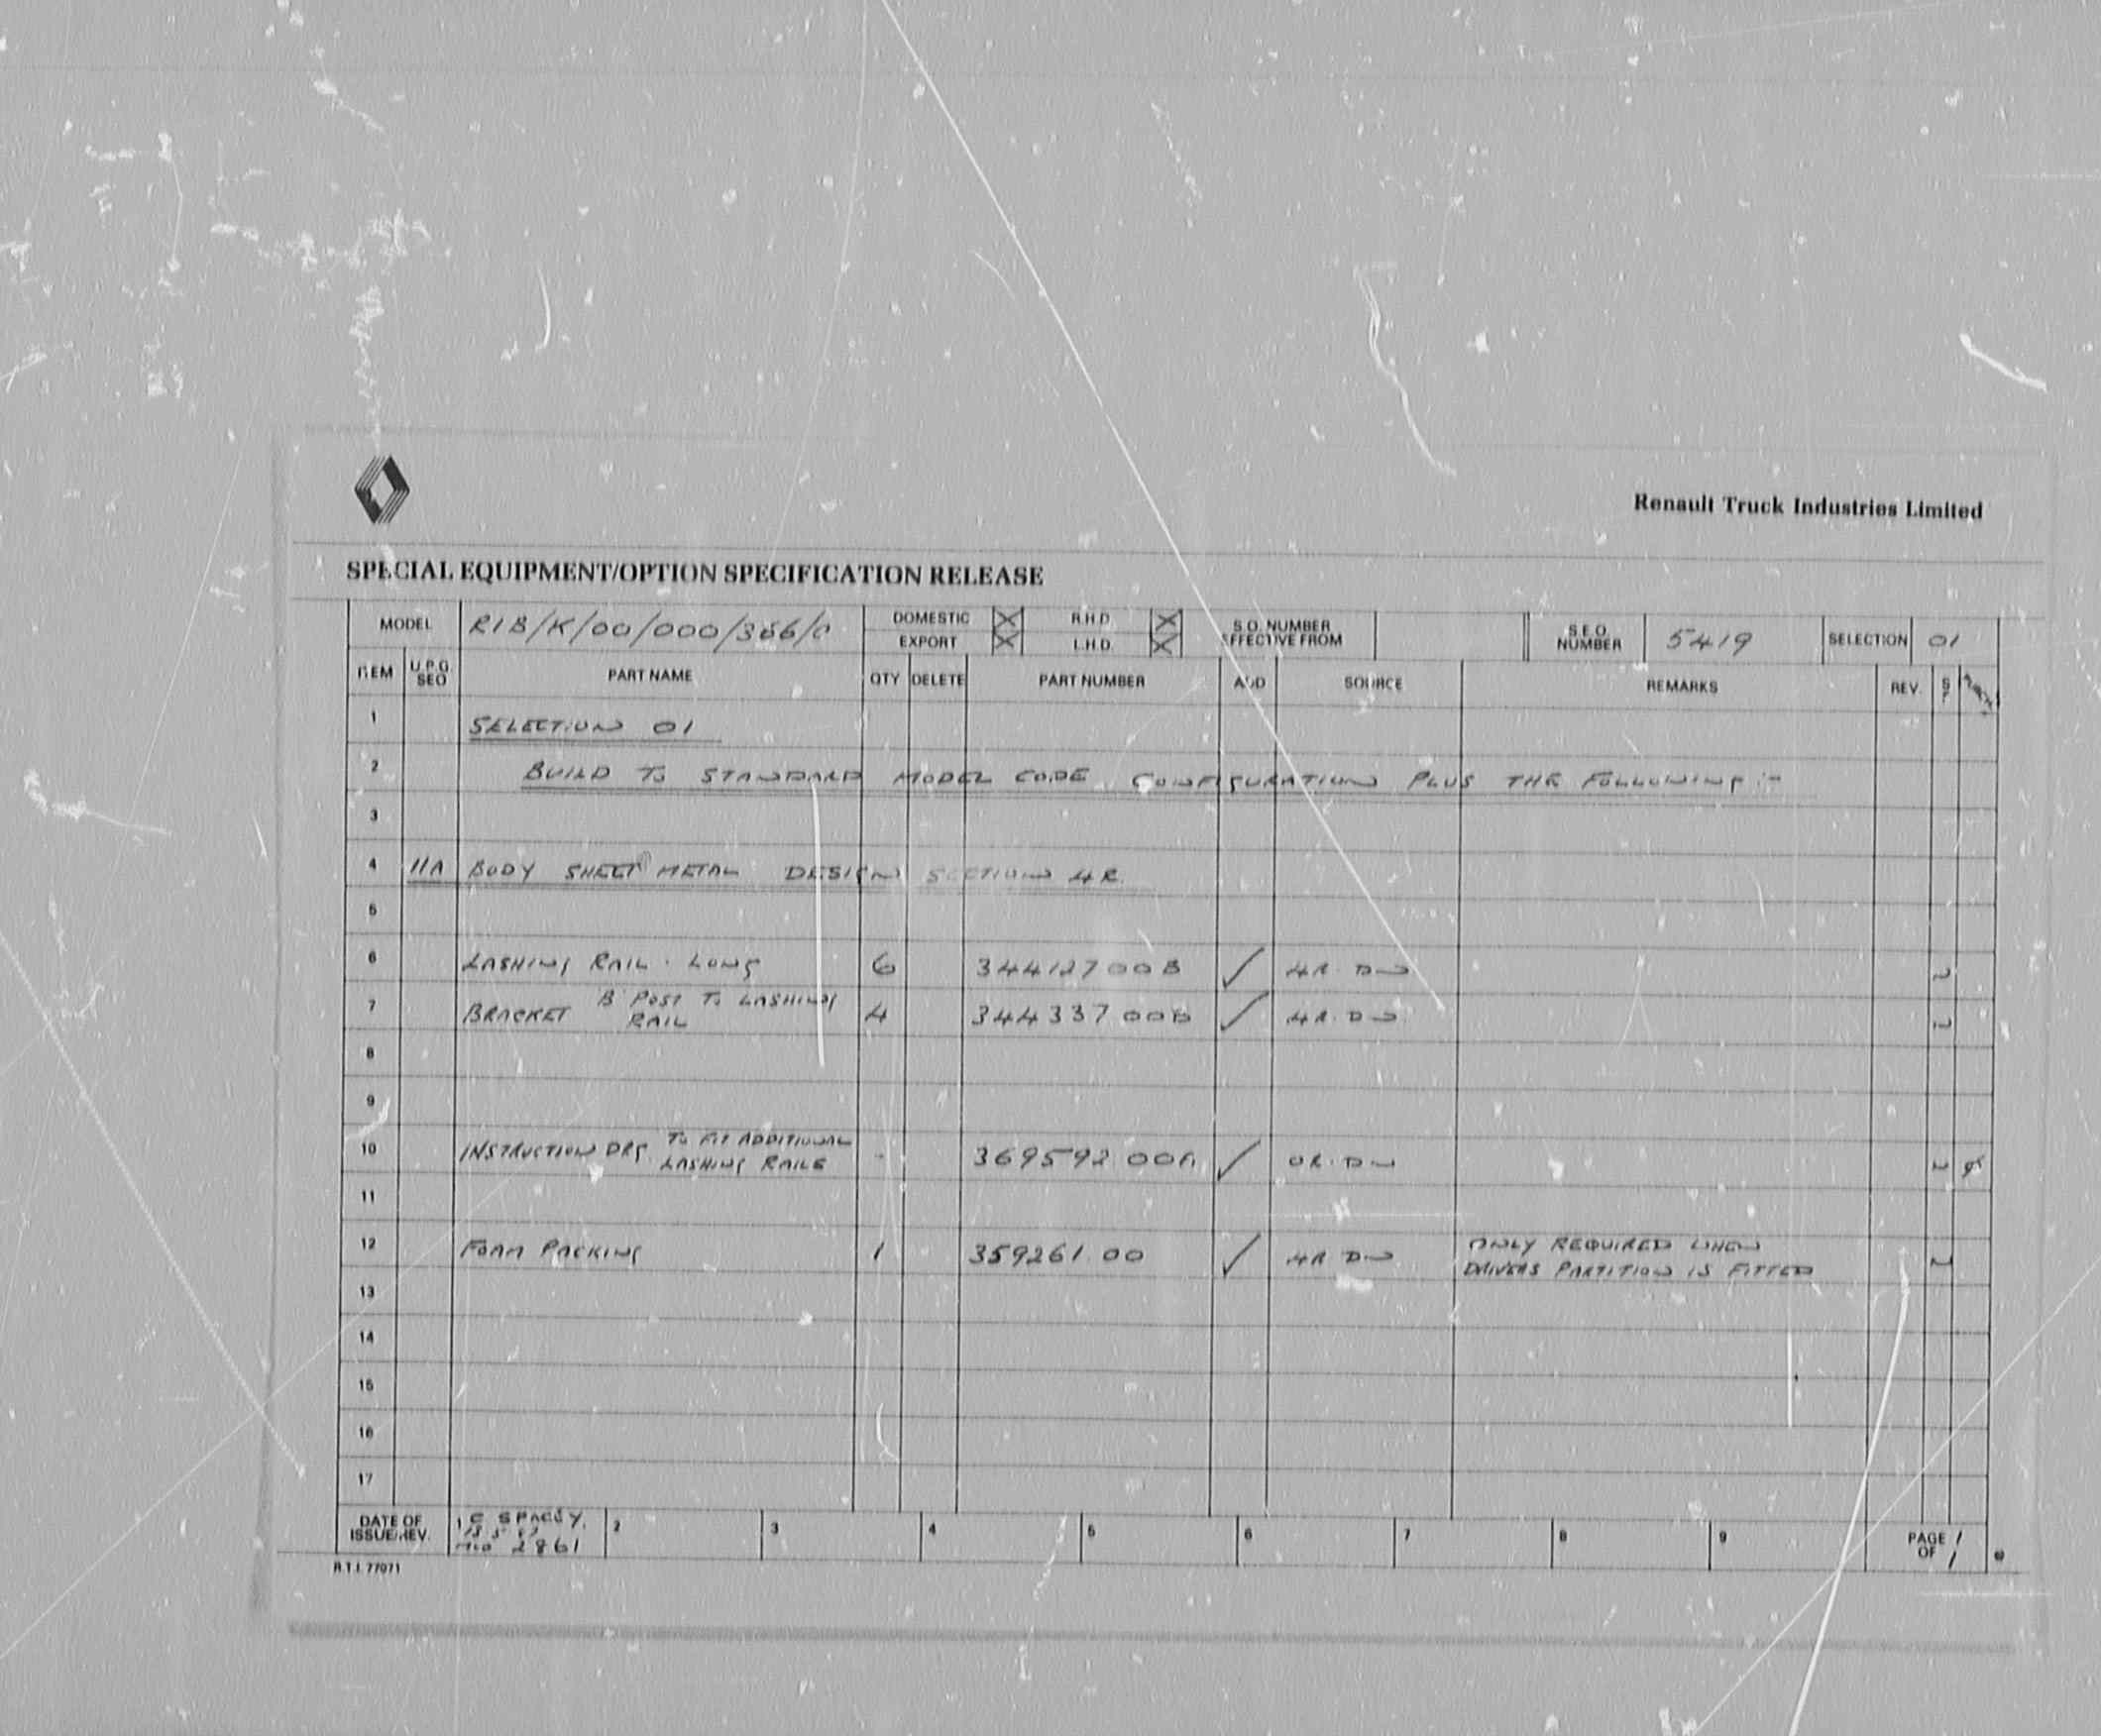 Renault Truck Industries Limited
SPECIAL EQUIPMENT/OPTION SPECIFICATION RELEASE
MODEL R1B/K/00/000/366/0 DOMESTIC X R.H.D X S.O. NUMBER EFFECTIVE FROM S.E.O. NUMBER 5419 SELECTION 01
EXPORT X L.H.D. X
ITEM U.P.G. SEQ PART NAME QTY DELETE PART NUMBER ADD SOURCE REMARKS REV.
1 SELECTION 01
2 BUILD TO STANDARD MODEL CODE CONFIGURATION PLUS THE FOLLOWING :-
3
4 11A BODY SHEET METAL DESIGN SECTION 4R.
5
6 LASHING RAIL - LONG 6 34412700B ✓ 4R. DN 2
7 BRACKET 'B' POST TO LASHING RAIL 4 34433700B ✓ 4R. DN. 2
8
9
10 INSTRUCTION DRG. TO FIT ADDITIONAL LASHING RAILS - 36959200A ✓ 0R. DN 2
11
12 FOAM PACKING 1 359261.00 ✓ 4R DN ONLY REQUIRED WHEN DRIVERS PARTITION IS FITTED 2
13
14
15
16
17
DATE OF ISSUE/REV. 1 C SPACEY. 2861 2 3 4 5 6 7 8 9 PAGE 1 OF 1
R.T.I. 77071